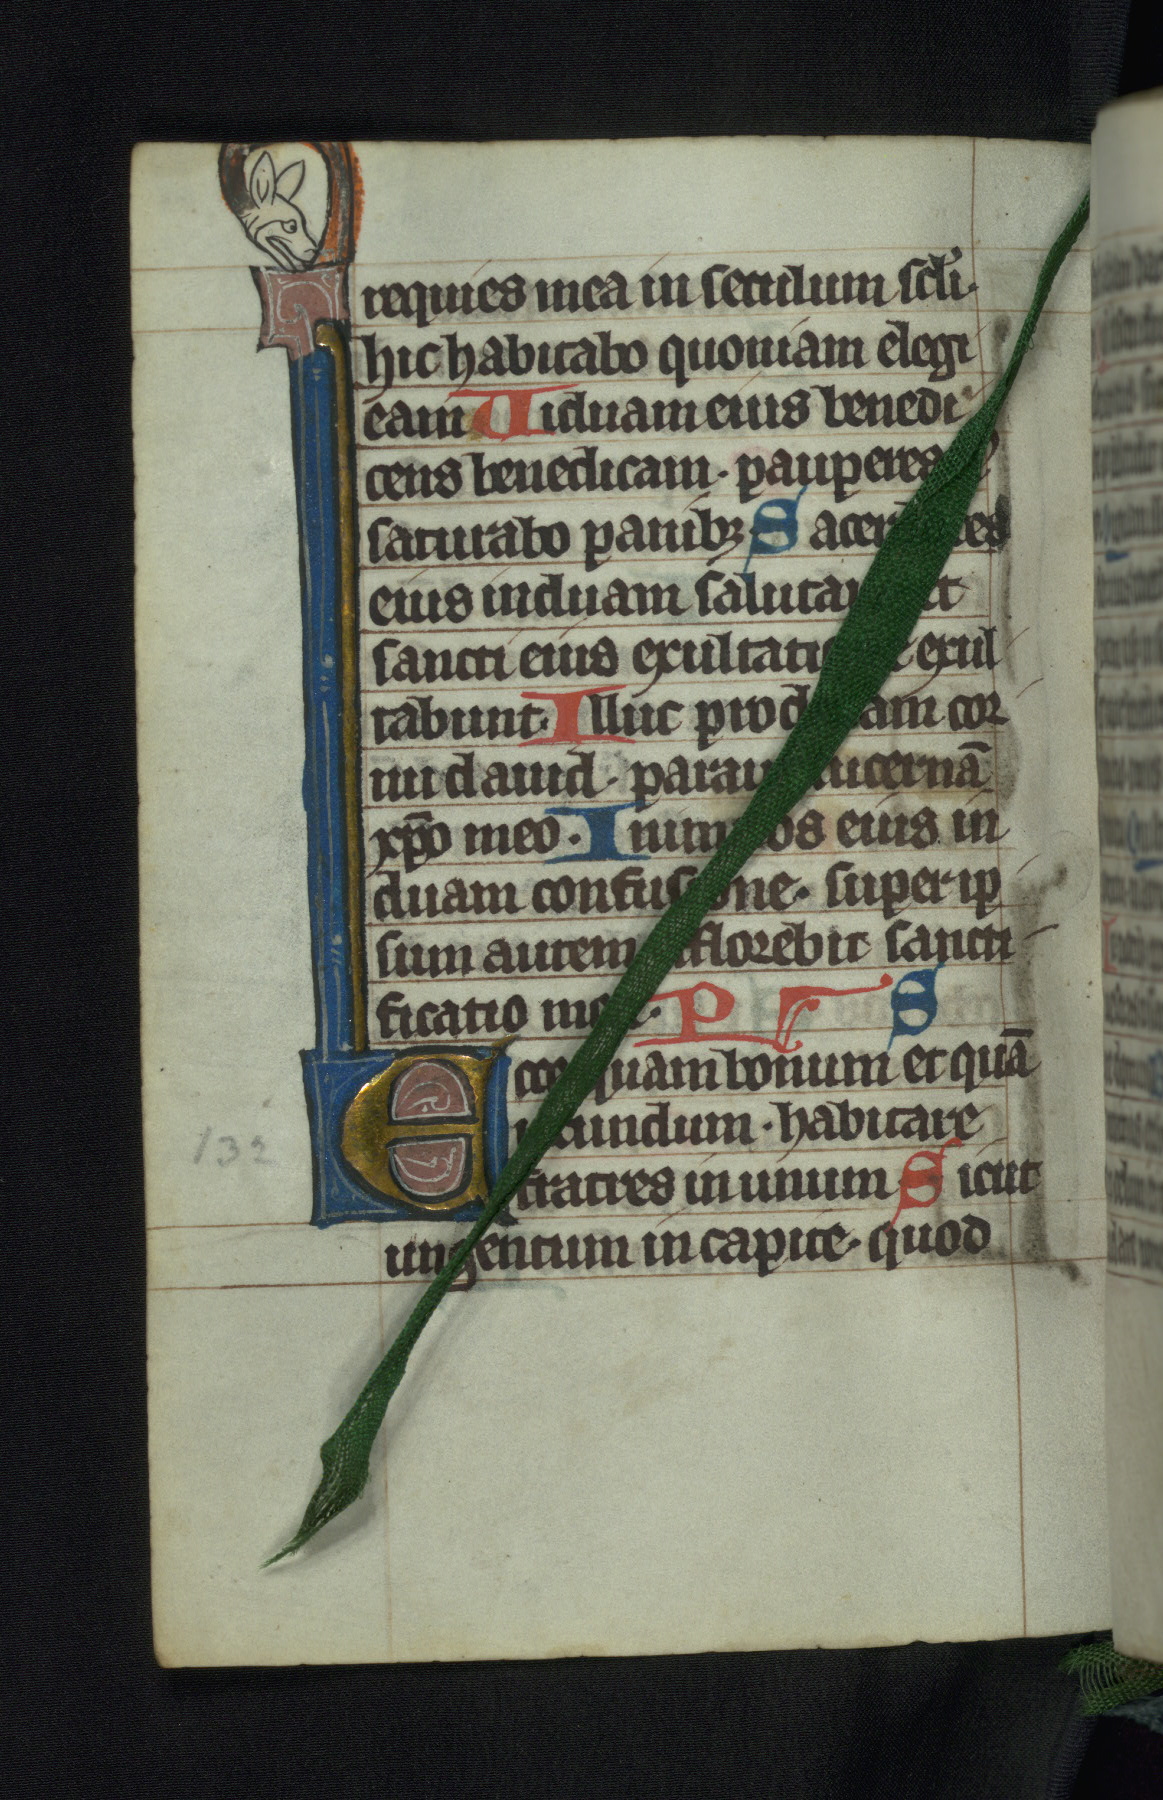 requies mea in seculum scl'i.
hic habitabo quoniam elegi
eam Uiduam eius benedi
cens benedicam. pauperes
saturabo panibꝫ Sacer es
eius induam salutar et
sancti eius exultati e exul
tabunt. Illuc prod am cor
nu dauid. paraui lucernā
xp̄o meo. Inimi os eius in
duam confusione. super ip
sum autem efflorebit sancti
ficatio mea. PS
Ecce quam bonum et quā
iocundum. habitare
fratres in unum Sicut
ungentum in capite. quod
132